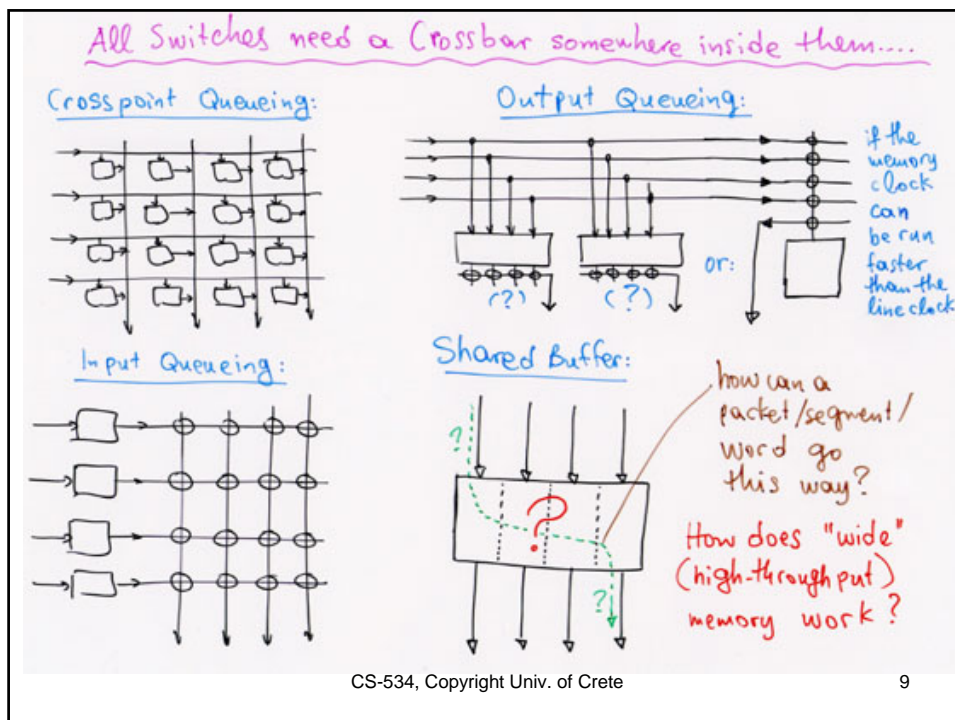 All Switches need a Crossbar somewhere inside them....
Crosspoint Queueing:
Output Queueing:
if the
memory
clock
can
be run
faster
than the
line clock
(?)
(?)
or:
Input Queueing:
Shared Buffer:
how can a
packet/segment/
word go
this way?
?
?
?
How does "wide"
(high-throughput)
memory work?
CS-534, Copyright Univ. of Crete
9